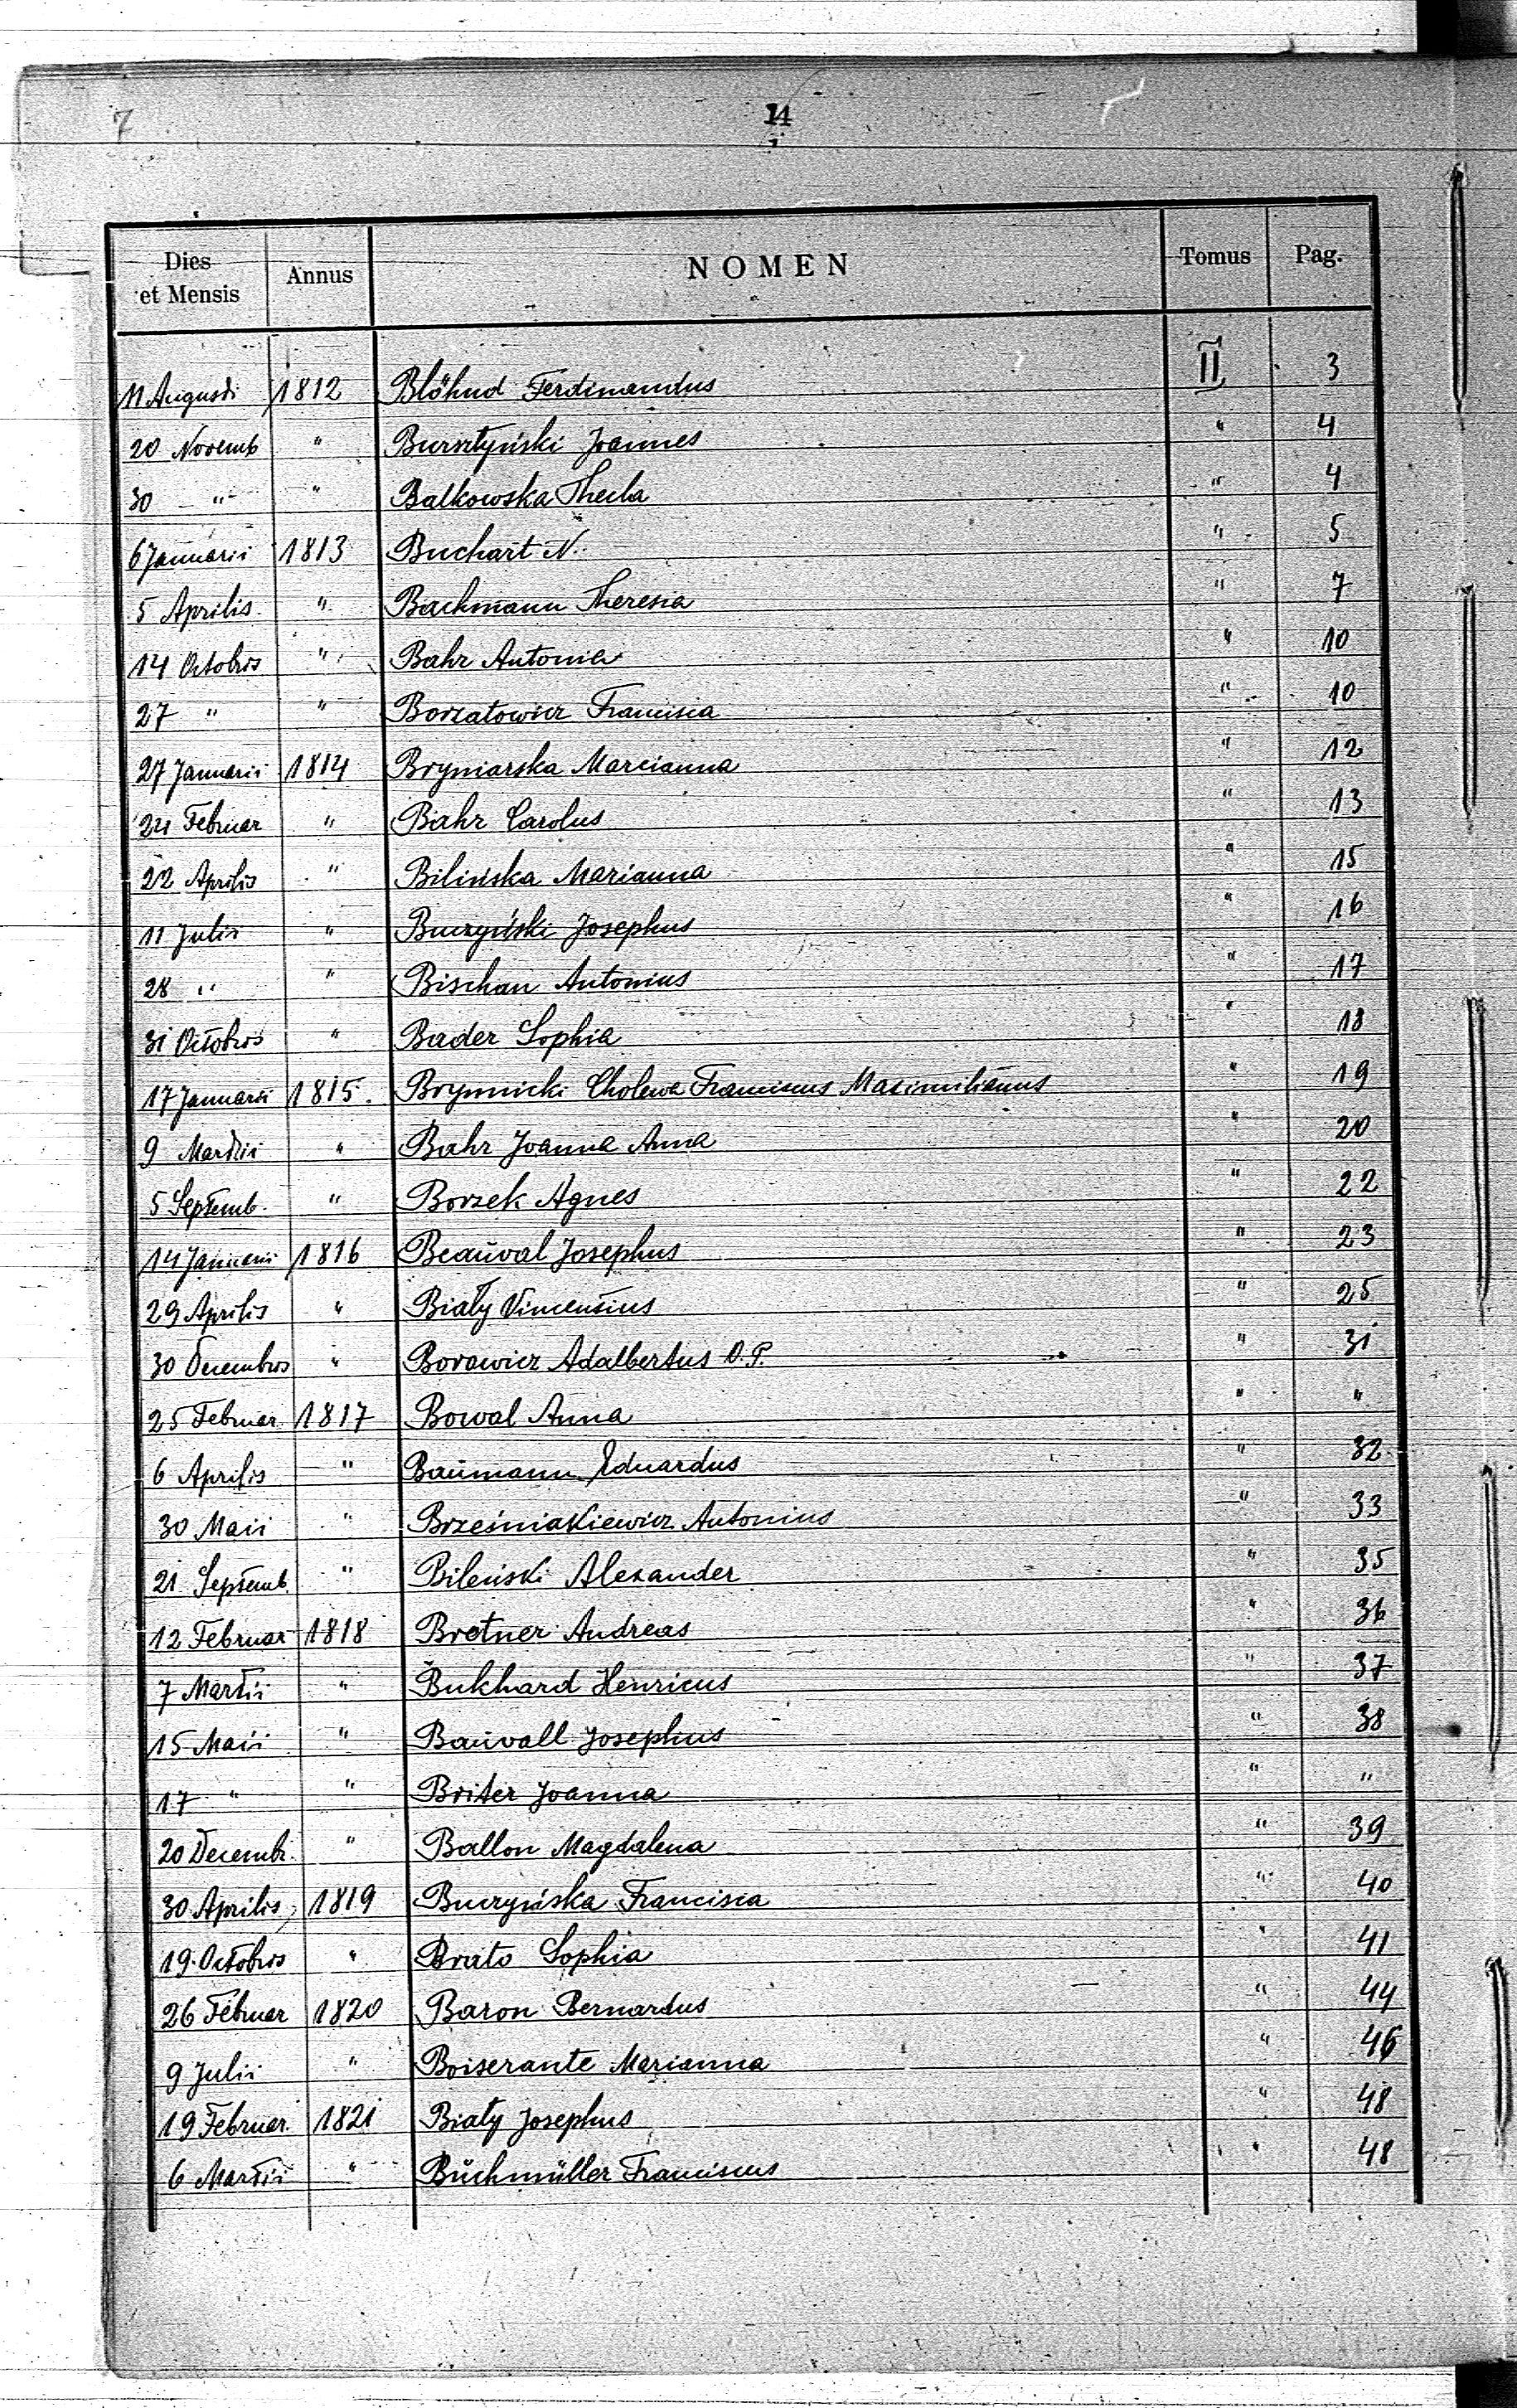 7
14
Dies et Mensis Annus NOMEN Tomus Pag.
11 Augusti 1812 Blöhnd Ferdinandus II 3
20 Novemb " Bursztyński Joannes " 4
30 " " Balkowska Thecla " 4
6 Januarii 1813 Buchart N. " 5
5 Aprilis " Bachmann Theresia " 7
14 Octobris " Bahr Antonia " 10
27 " " Borzatowicz Francisca " 10
27 Januarii 1814 Bryniarska Marcianna " 12
24 Februar " Bahr Carolus " 13
22 Aprilis " Bilińska Marianna " 15
11 Julii " Buczyński Josephus " 16
28 " " Bischan Antonius " 17
31 Octobris " Bader Sophia " 18
17 Januarii 1815. Brynnicki Cholewa Franciscus Maximilianus " 19
9 Martii " Bahr Joanna Anna " 20
5 Septemb. " Borzek Agnes " 22
14 Januarii 1816 Beauval Josephus " 23
29 Aprilis " Biały Vincentius " 25
30 Decembris " Borowicz Adalbertus O.P. " 31
25 Februar. 1817 Bowal Anna " "
6 Aprilis " Baumann Eduardus " 32
30 Maii " Brześniakiewicz Antonius " 33
21 Septemb. " Bileński Alexander " 35
12 Februar 1818 Bretner Andreas " 36
7 Martii " Bukhard Henricus " 37
15 Maii " Bauvall Josephus " 38
17 " " Briter Joanna " "
20 Decembr. " Ballon Magdalena " 39
30 Aprilis 1819 Buczyńska Francisca " 40
19. Octobris " Brato Sophia " 41
26 Februar 1820 Baron Bernardus " 44
9 Julii " Boiserante Marianna " 46
19 Februar. 1821 Biały Josephus " 48
6 Martii " Buchmüller Franciscus " 48